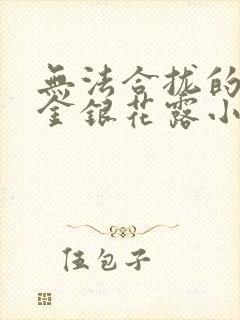 無法合拢的
金銀花露小
伍包子